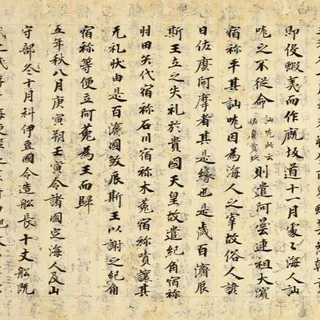 即役蝦夷而作厩坂道十一月處々海人訕
哤之不從命訕哤此云佐麼賣玖則遣阿曇連祖大濱
宿祢平其訕哤因爲海人之宰故俗人諺
曰佐麼阿摩者其是緣也是歳百濟辰
斯王立之失礼於貴國天皇故遣紀角宿祢
羽田矢代宿祢石川宿祢木菟宿祢嘖讓其
无礼状由是百濟國殺辰斯王以謝之紀角
宿祢等便立阿花為王而歸
五年秋八月庚寅朔壬寅令諸國定海人及山
守部冬十月科伊豆國令造舩長十丈舩既